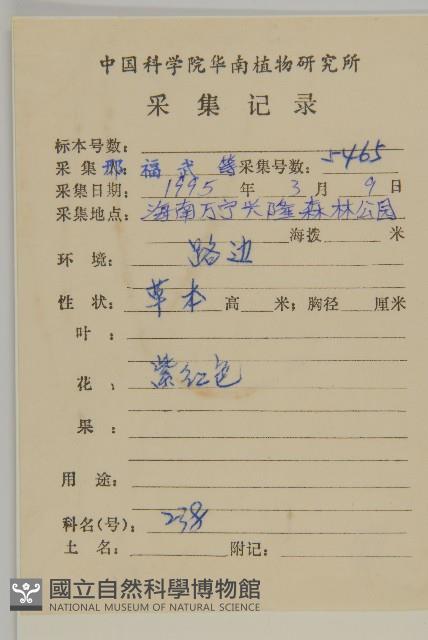 中国科学院华南植物研究所
采集记录
标本号数：
采集 邢福武等 采集号数：5465
采集日期：1995年3月9日
采集地点：海南万宁兴隆森林公园
海拨 米
环境：路边
性状：草本 高 米；胸径 厘米
叶：
花：紫红色
果：
用途：
科名(号)：238
土名： 附记：
國立自然科學博物館
NATIONAL MUSEUM OF NATURAL SCIENCE